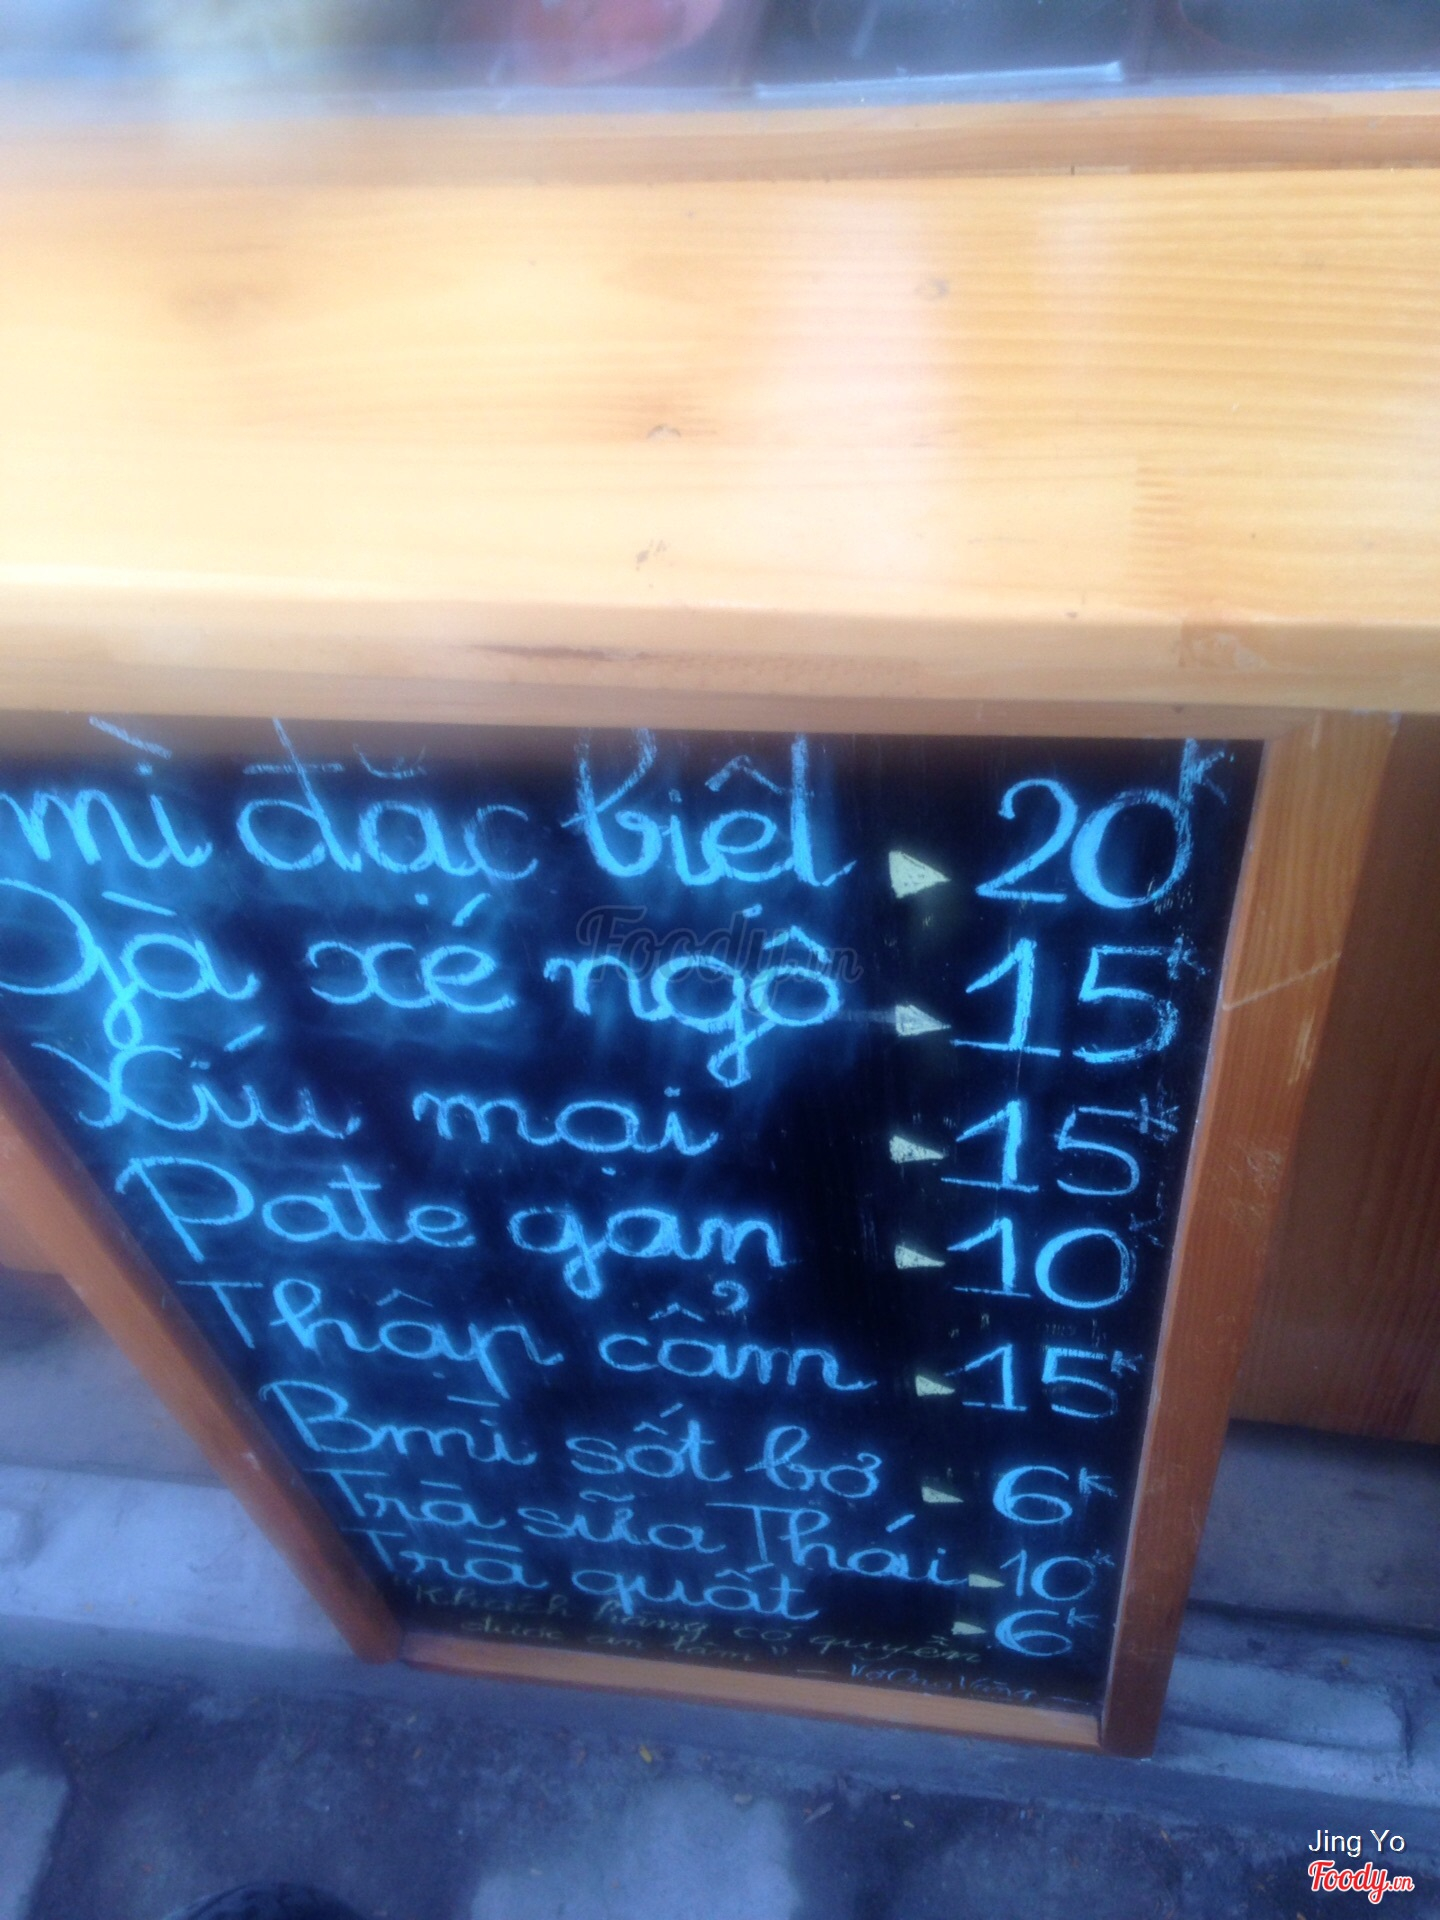 mì đặc biệt 20K
Gà xé ngô 15K
Xíu mại 15K
Pate gan 10K
Thập cẩm 15K
Bmì sốt bơ 6K
Trà sữa Thái 10K
Trà quất 6K
"Khách hàng có quyền
được an tâm"
Foody.vn
Jing Yo
Foody.vn